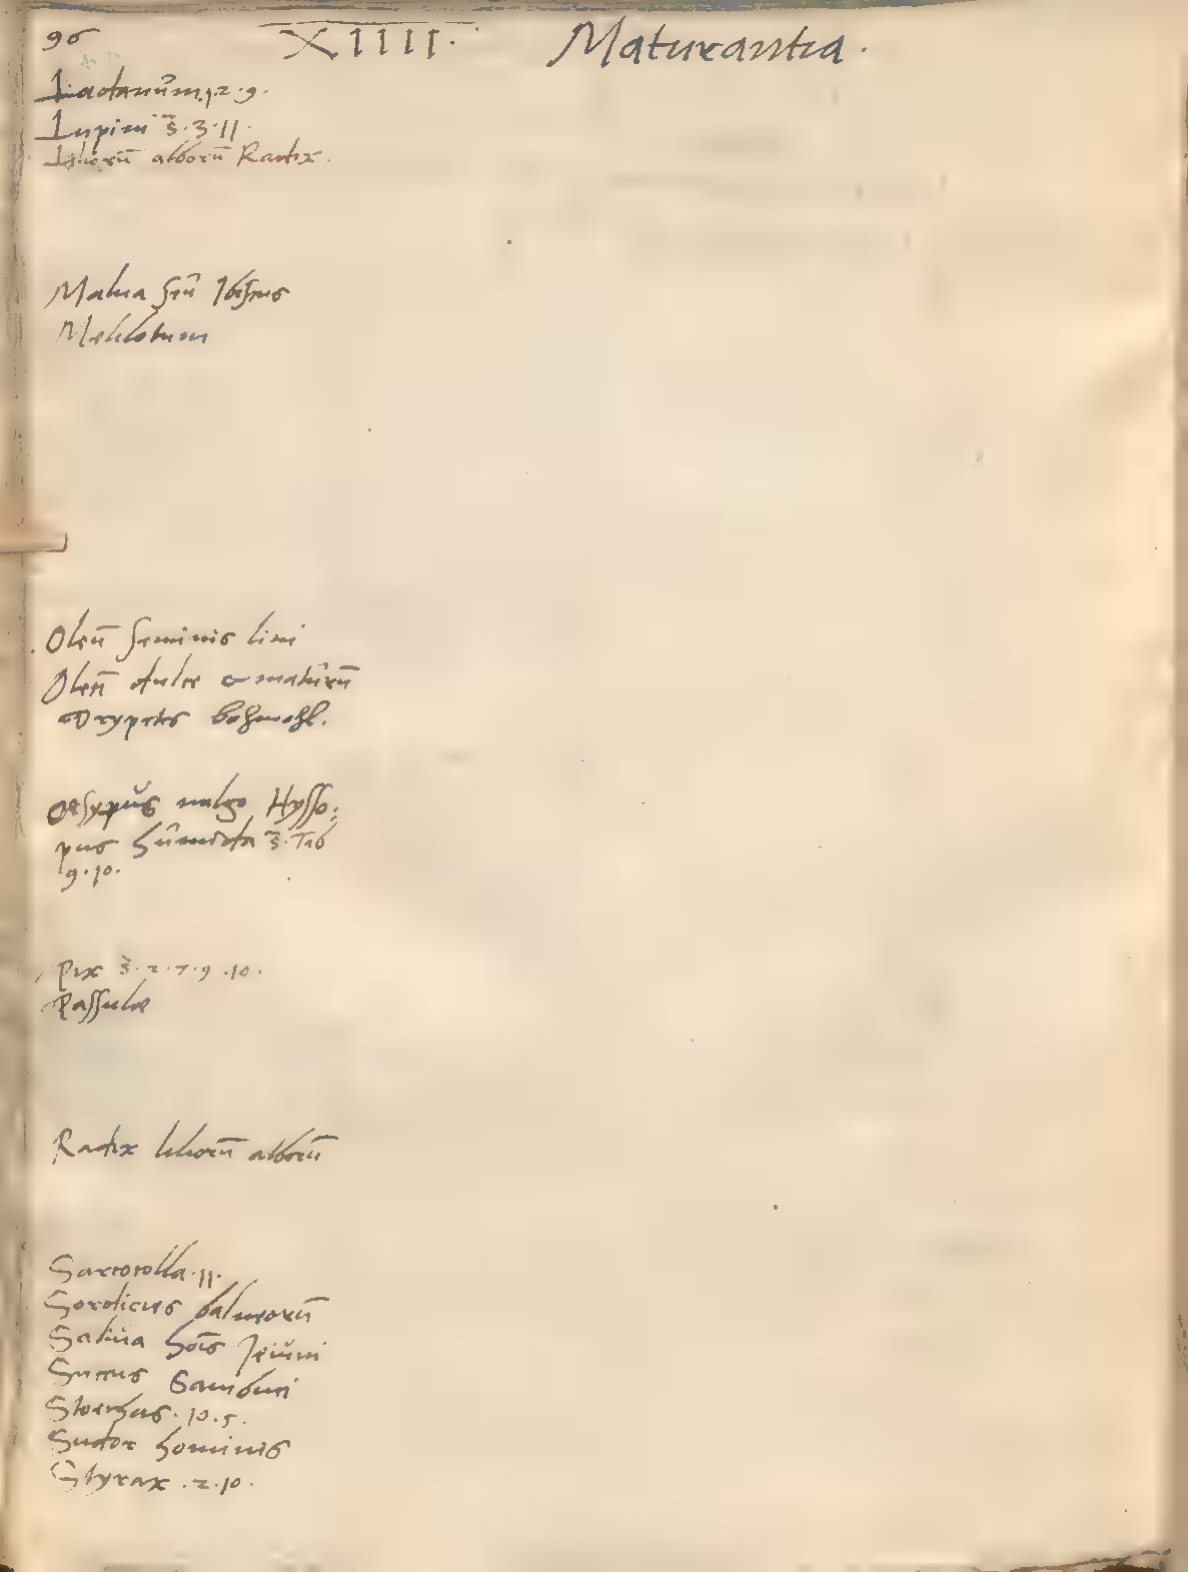 96 XIIII. Maturantia.
Ladanum. 1. 2. 9.
Lupini 3. 11.
Liliorū alborū Radix.
Malua seu Ibiscus
Melilotum
Oleū seminis lini
Oleū dulce & maturū
Drypetes
Oesypus uulgo Hysso:
pus humida
9. 10.
Pix 2. 7. 9. 10.
Passulæ
Radix liliorū alborū
Sarcocolla. 11.
Sordicies balneorū
Saliua hoīs Jeiuni
Succus Sambuci
Stoechas. 10. 5.
Sudor hominis
Styrax. 2. 10.